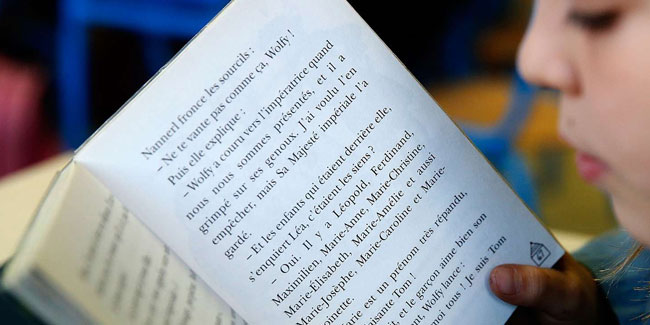 Nannerl fronce les sourcils :
– Ne te vante pas comme ça, Wolfy !
Puis elle explique :
– Wolfy a couru vers l'impératrice quand
nous nous sommes présentés, et il a
grimpé sur ses genoux. J'ai voulu l'en
empêcher, mais Sa Majesté impériale l'a
gardé.
– Et les enfants qui étaient derrière elle,
s'enquiert Léa, c'étaient les siens ?
– Oui. Il y a Léopold, Ferdinand,
Maximilien, Marie-Anne, Marie-Christine,
Marie-Élisabeth, Marie-Amélie et aussi
Marie-Josèphe, Marie-Caroline et Marie-
est un prénom très répandu,
Tom !
et le garçon aime bien son
Wolfy lance :
nous ! Je suis Tom